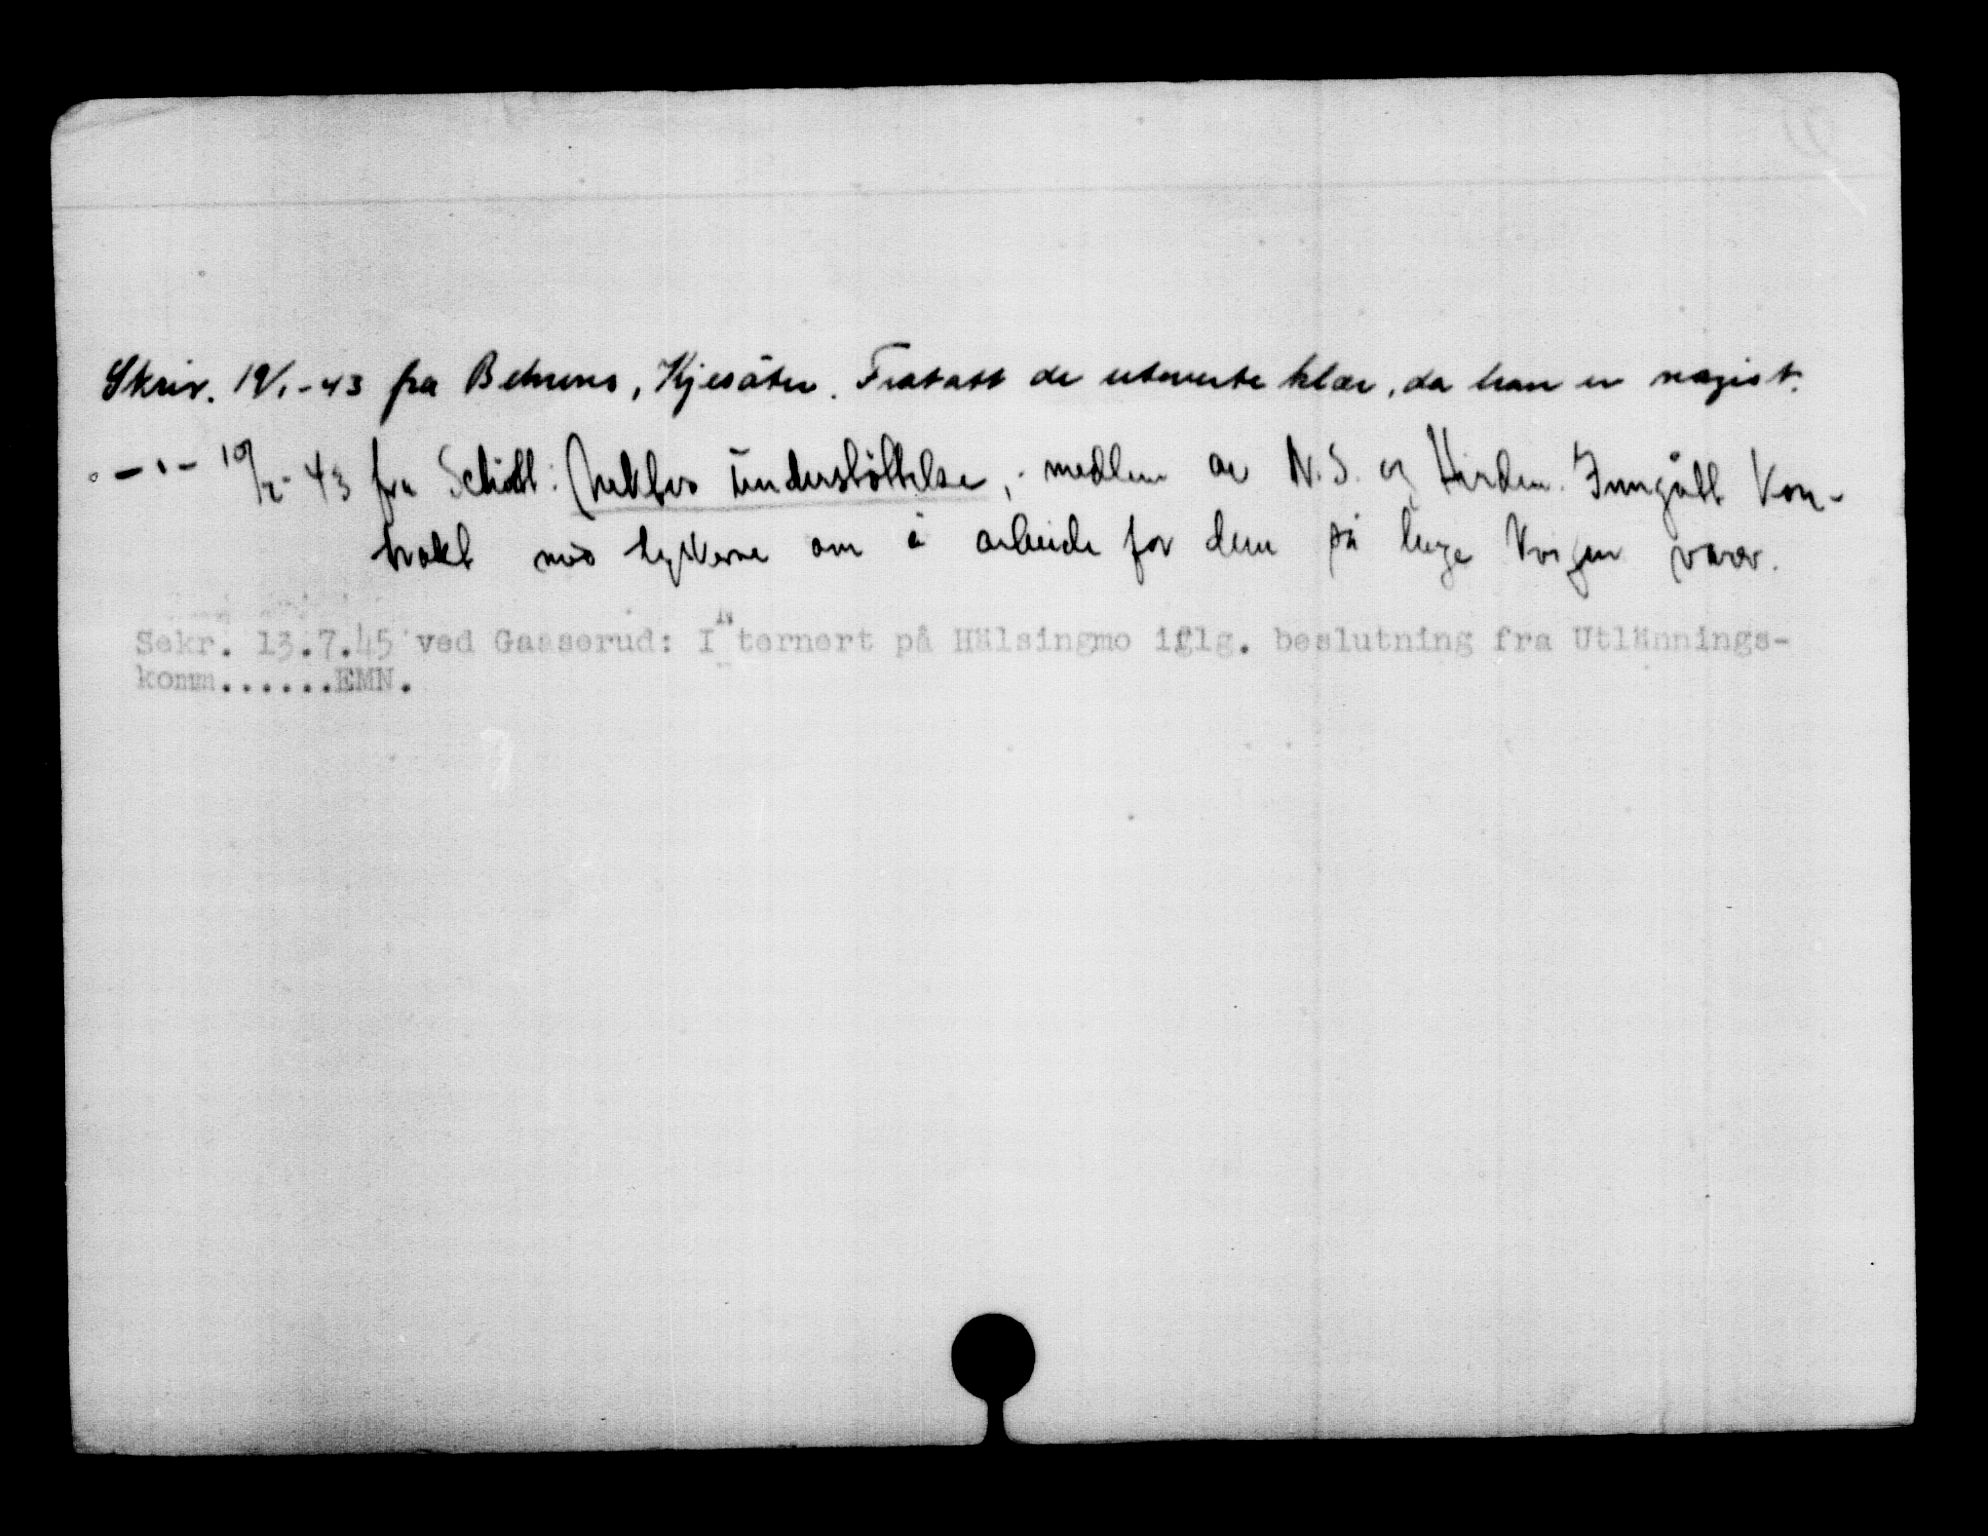 Skriv. 19/1-43 fra Behrens, Kjesäter. Fratatt de utleverte klær, da han er nazist.
-"- 10/2-43 fra Schött: Nektes understöttelse, - medlem av N.S. og Hirden. Inngått kon-
trakt med tyskerne om å arbeide for dem så lenge krigen varer.
Sekr. 13.7.45 ved Gaaserud: Internert på Hälsingmo iflg. beslutning fra Utlännings-
komm......EMN.